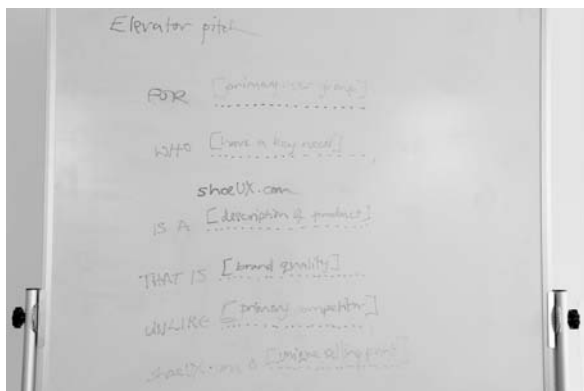 Elevator pitch
FOR [primary user group]
WHO [have a key need]
shoeUX.com
IS A [description of product]
THAT IS [brand quality]
UNLIKE [primary competitor]
shoeUX.com is [unique